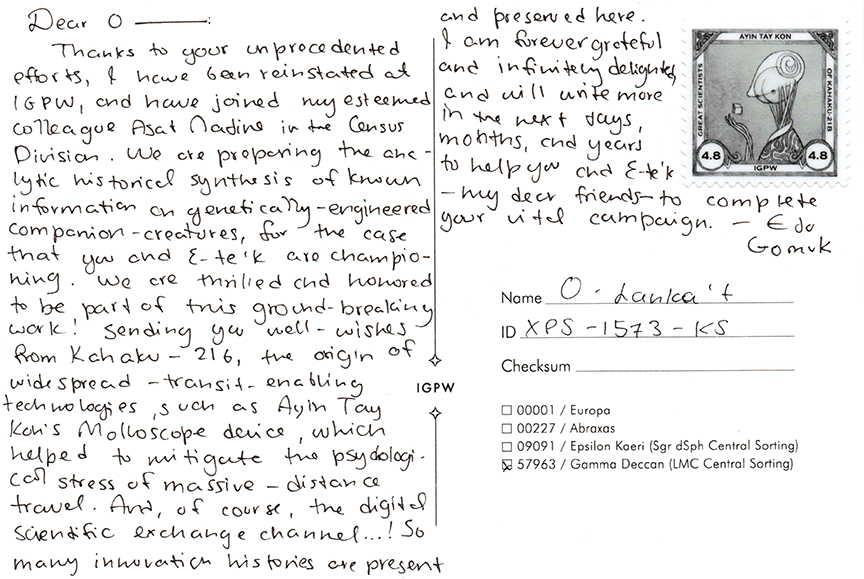 Dear O ———:
Thanks to your unprecedented
efforts, I have been reinstated at
IGPW, and have joined my esteemed
colleague Asat Nadine in the Census
Division. We are preparing the ana-
lytic historical synthesis of known
information on genetically-engineered
companion-creatures, for the case
that you and E-te'k are champio-
ning. We are thrilled and honored
to be part of this ground-breaking
work! Sending you well-wishes
from Kahaku-216, the origin of
widespread-transit-enabling
technologies, such as Ayin Tay
Kon's Molloscope device, which
helped to mitigate the psychologi-
cal stress of massive-distance
travel. And, of course, the digital
scientific exchange channel...! So
many innovation histories are present
and preserved here.
I am forever grateful
and infinitely delighted,
and will write more
in the next days,
months, and years
to help you and E-te'k
-my dear friends- to complete
your vital campaign. — Eda
Gomuk
AYIN TAY KON
GREAT SCIENTISTS
OF KAHAKU-21B
4.8
4.8
IGPW
IGPW
Name O-Lanka't
ID XPS-1573-KS
Checksum
00001 / Europa
00227 / Abraxas
09091 / Epsilon Kaeri (Sgr dSph Central Sorting)
57963 / Gamma Deccan (LMC Central Sorting)